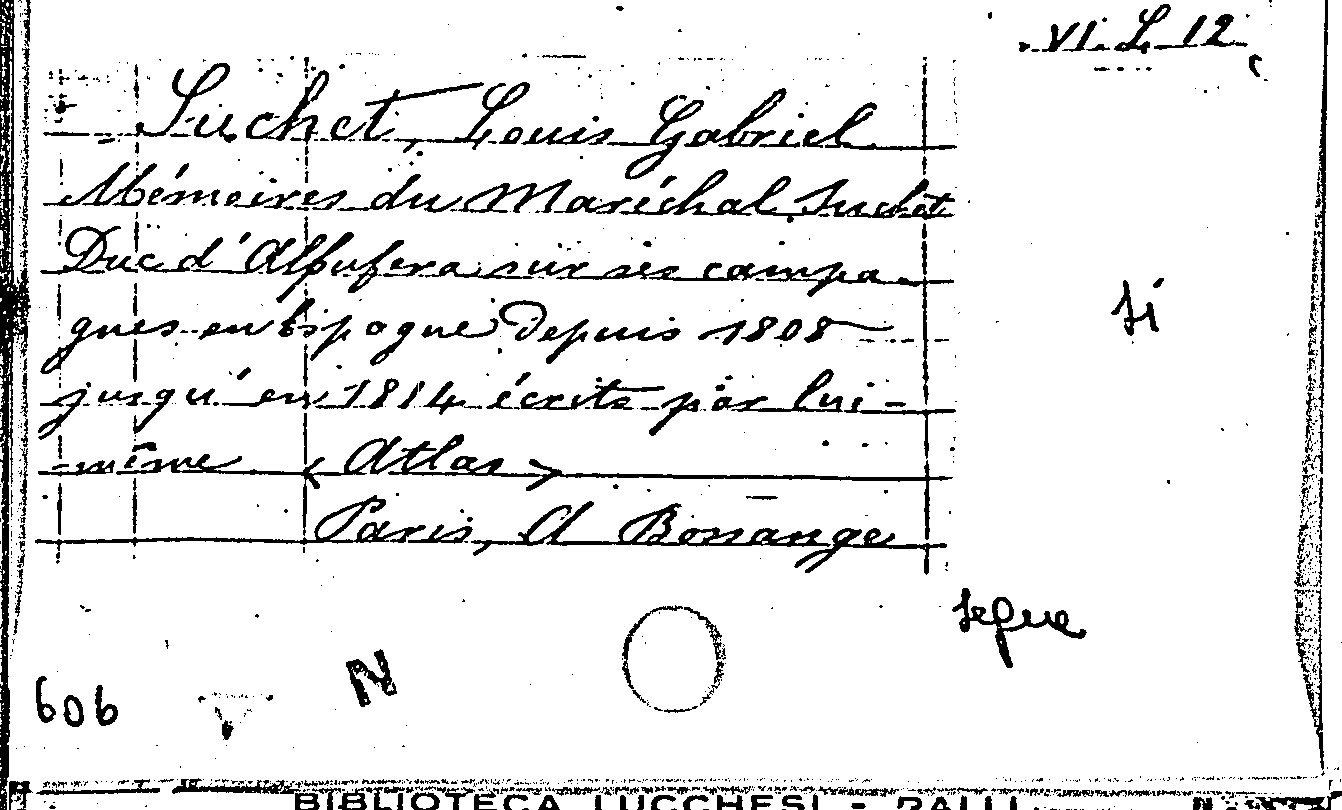 VI. L 12
Suchet, Louis Gabriel
Mémoires du Maréchal Suchet
Duc d'Alfufera sur ses campa-
gnes en Espagne depuis 1808
jusqu'en 1814 écrits par lui-
-même < Atlas >
Paris, A Bossange
si
segue
606
N
BIBLIOTECA LUCCHESI - PALLI